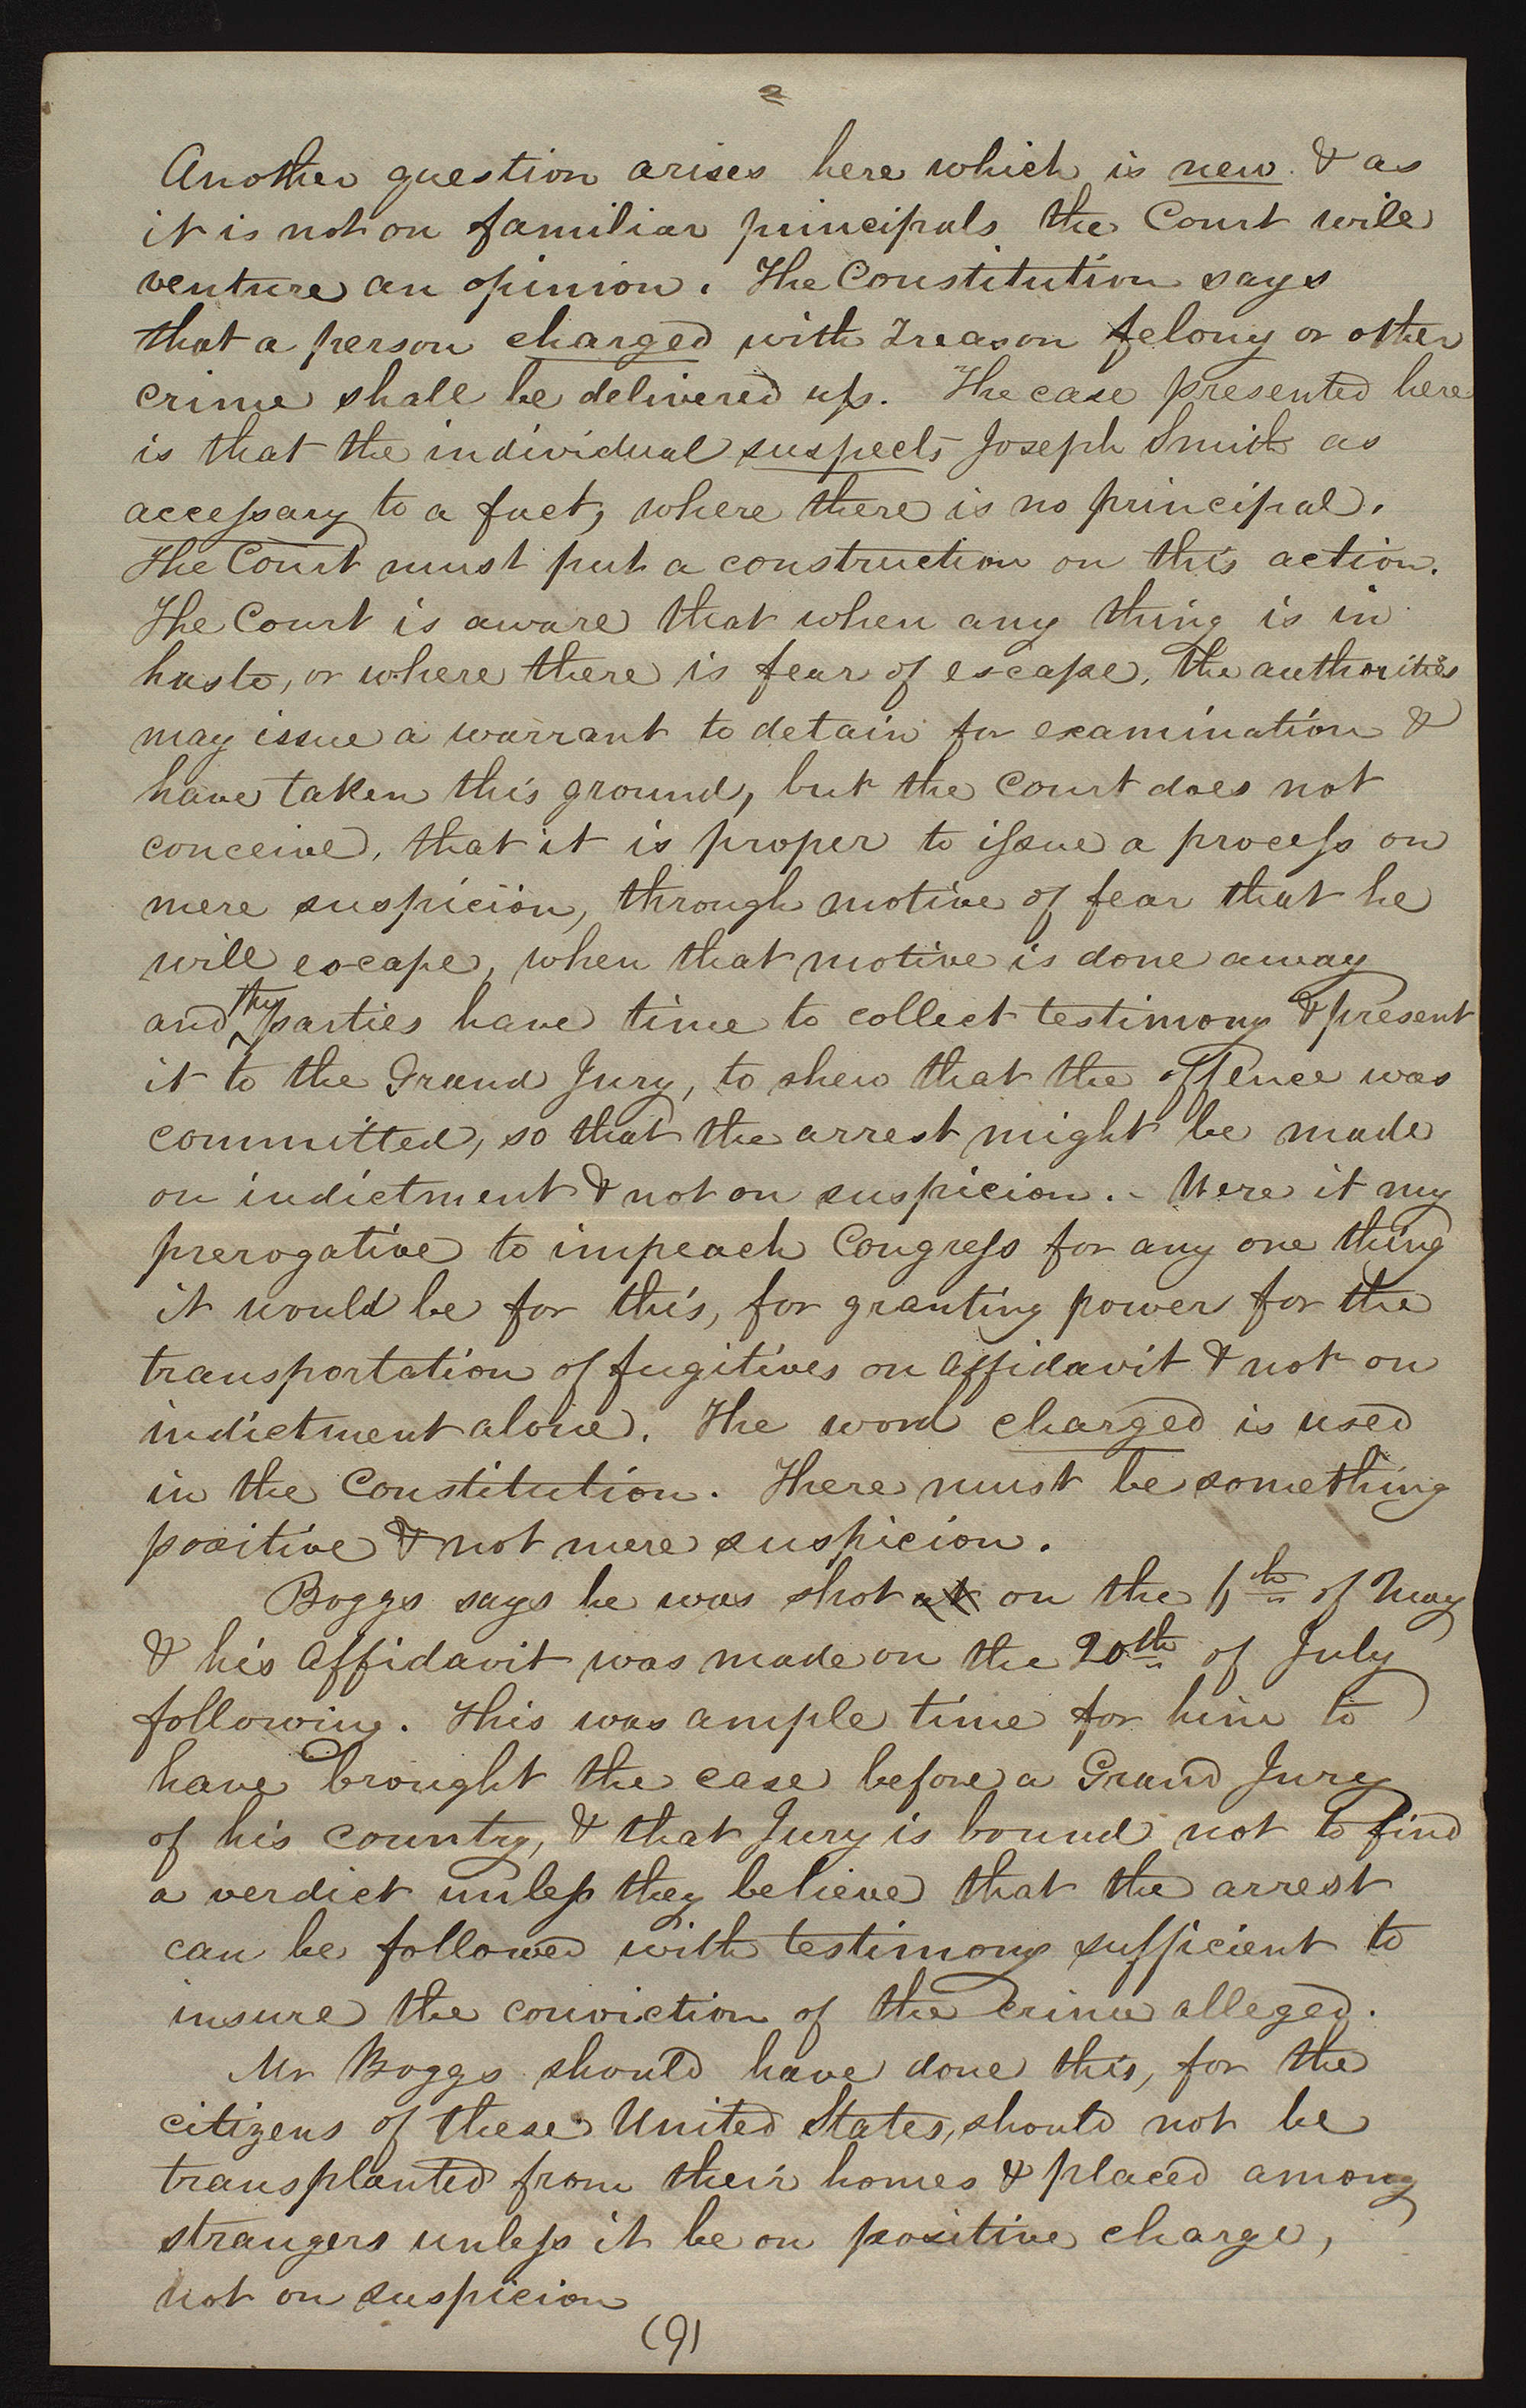 2
Another question arises here which is new. & as
it is not on familiar principals the Court will
venture an opinion. The Constitution says
that a person charged with Treason felony or other
crime shall be delivered up. The case presented here
is that the individual suspects Joseph Smith as
accessary to a fact, where there is no principal.
The Court must put a construction on this action.
The Court is aware that when any thing is in
haste, or where there is fear of escape, the authorities
may issue a warrant to detain for examination &
have taken this ground, but the Court does not
conceive, that it is proper to issue a process on
mere suspicion, through motive of fear that he
will escape, when that motive is done away
and the parties have time to collect testimony & present
it to the Grand Jury, to shew that the offence was
committed, so that the arrest might be made
on indictment & not on suspicion. - Were it my
prerogative to impeach Congress for any one thing
it would be for this, for granting power for the
transportation of fugitives on affidavit & not on
indictment alone. The word charged is used
in the Constitution. There must be something
positive & not mere suspicion.
Boggs says he was shot at on the 6th of May
& his affidavit was made on the 20th of July
following. This was ample time for him to
have brought the case before a Grand Jury
of his country, & that Jury is bound not to find
a verdict unless they believe that the arrest
can be followed with testimony sufficient to
insure the conviction of the crime alleged.
Mr Boggs should have done this, for the
citizens of these United States, should not be
transplanted from their homes & placed among
strangers unless it be on positive charge,
not on suspicion
(9)